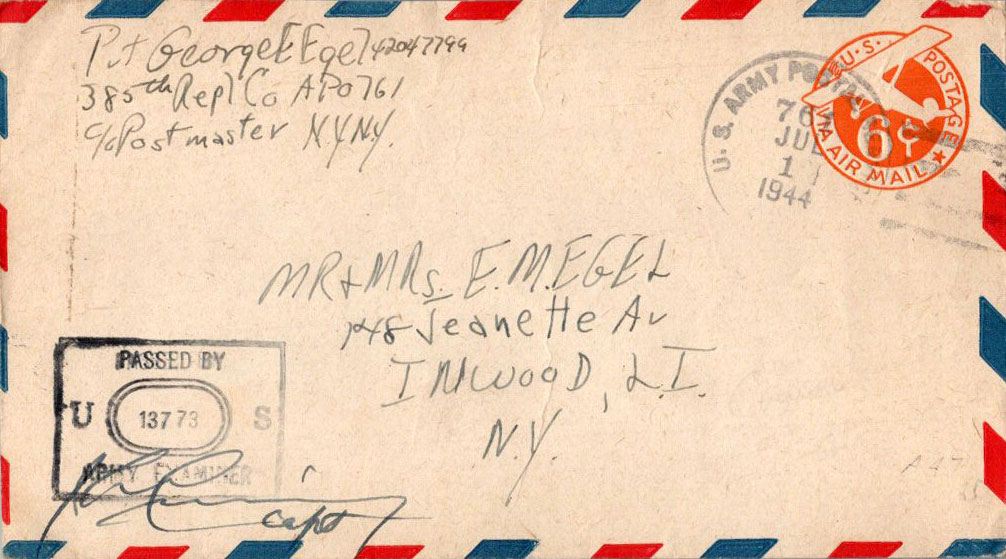 Pvt George E Egel 42047799
385th Repl Co APO 761
c/o Postmaster N.Y.N.Y.
U.S. ARMY POSTAL
JUL
1
1944
U.S. POSTAGE
6¢
VIA AIR MAIL
MR + MRS. E. M. EGEL
148 Jeanette Av
INWOOD, L.I.
N.Y.
PASSED BY
U 13773 S
ARMY EXAMINER
Capt